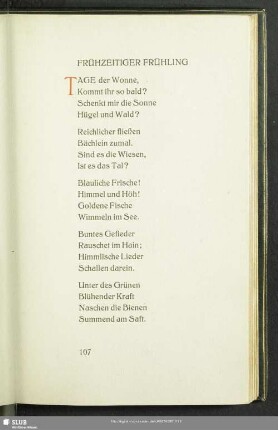 FRÜHZEITIGER FRÜHLING
TAGE der Wonne,
Kommt ihr so bald?
Schenkt mir die Sonne
Hügel und Wald?
Reichlicher fließen
Bächlein zumal.
Sind es die Wiesen,
Ist es das Tal?
Bläuliche Frische!
Himmel und Höh!
Goldene Fische
Wimmeln im See.
Buntes Gefieder
Rauschet im Hain;
Himmlische Lieder
Schallen darein.
Unter des Grünen
Blühender Kraft
Naschen die Bienen
Summend am Saft.
107
SLUB